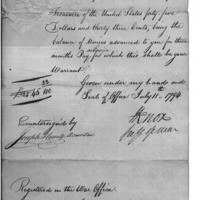 Treasurer of the United States forty five
Dollars and thirty three Cents, being the
balance of Monies advanced to you for three
months Pay for which this shall be your
Warrant.
Given under my hand and
Seal of Office July 11th 1794
33
45 100
HKnox
Secy of War
Countersigned by
Joseph Howell
Registered in the War Office